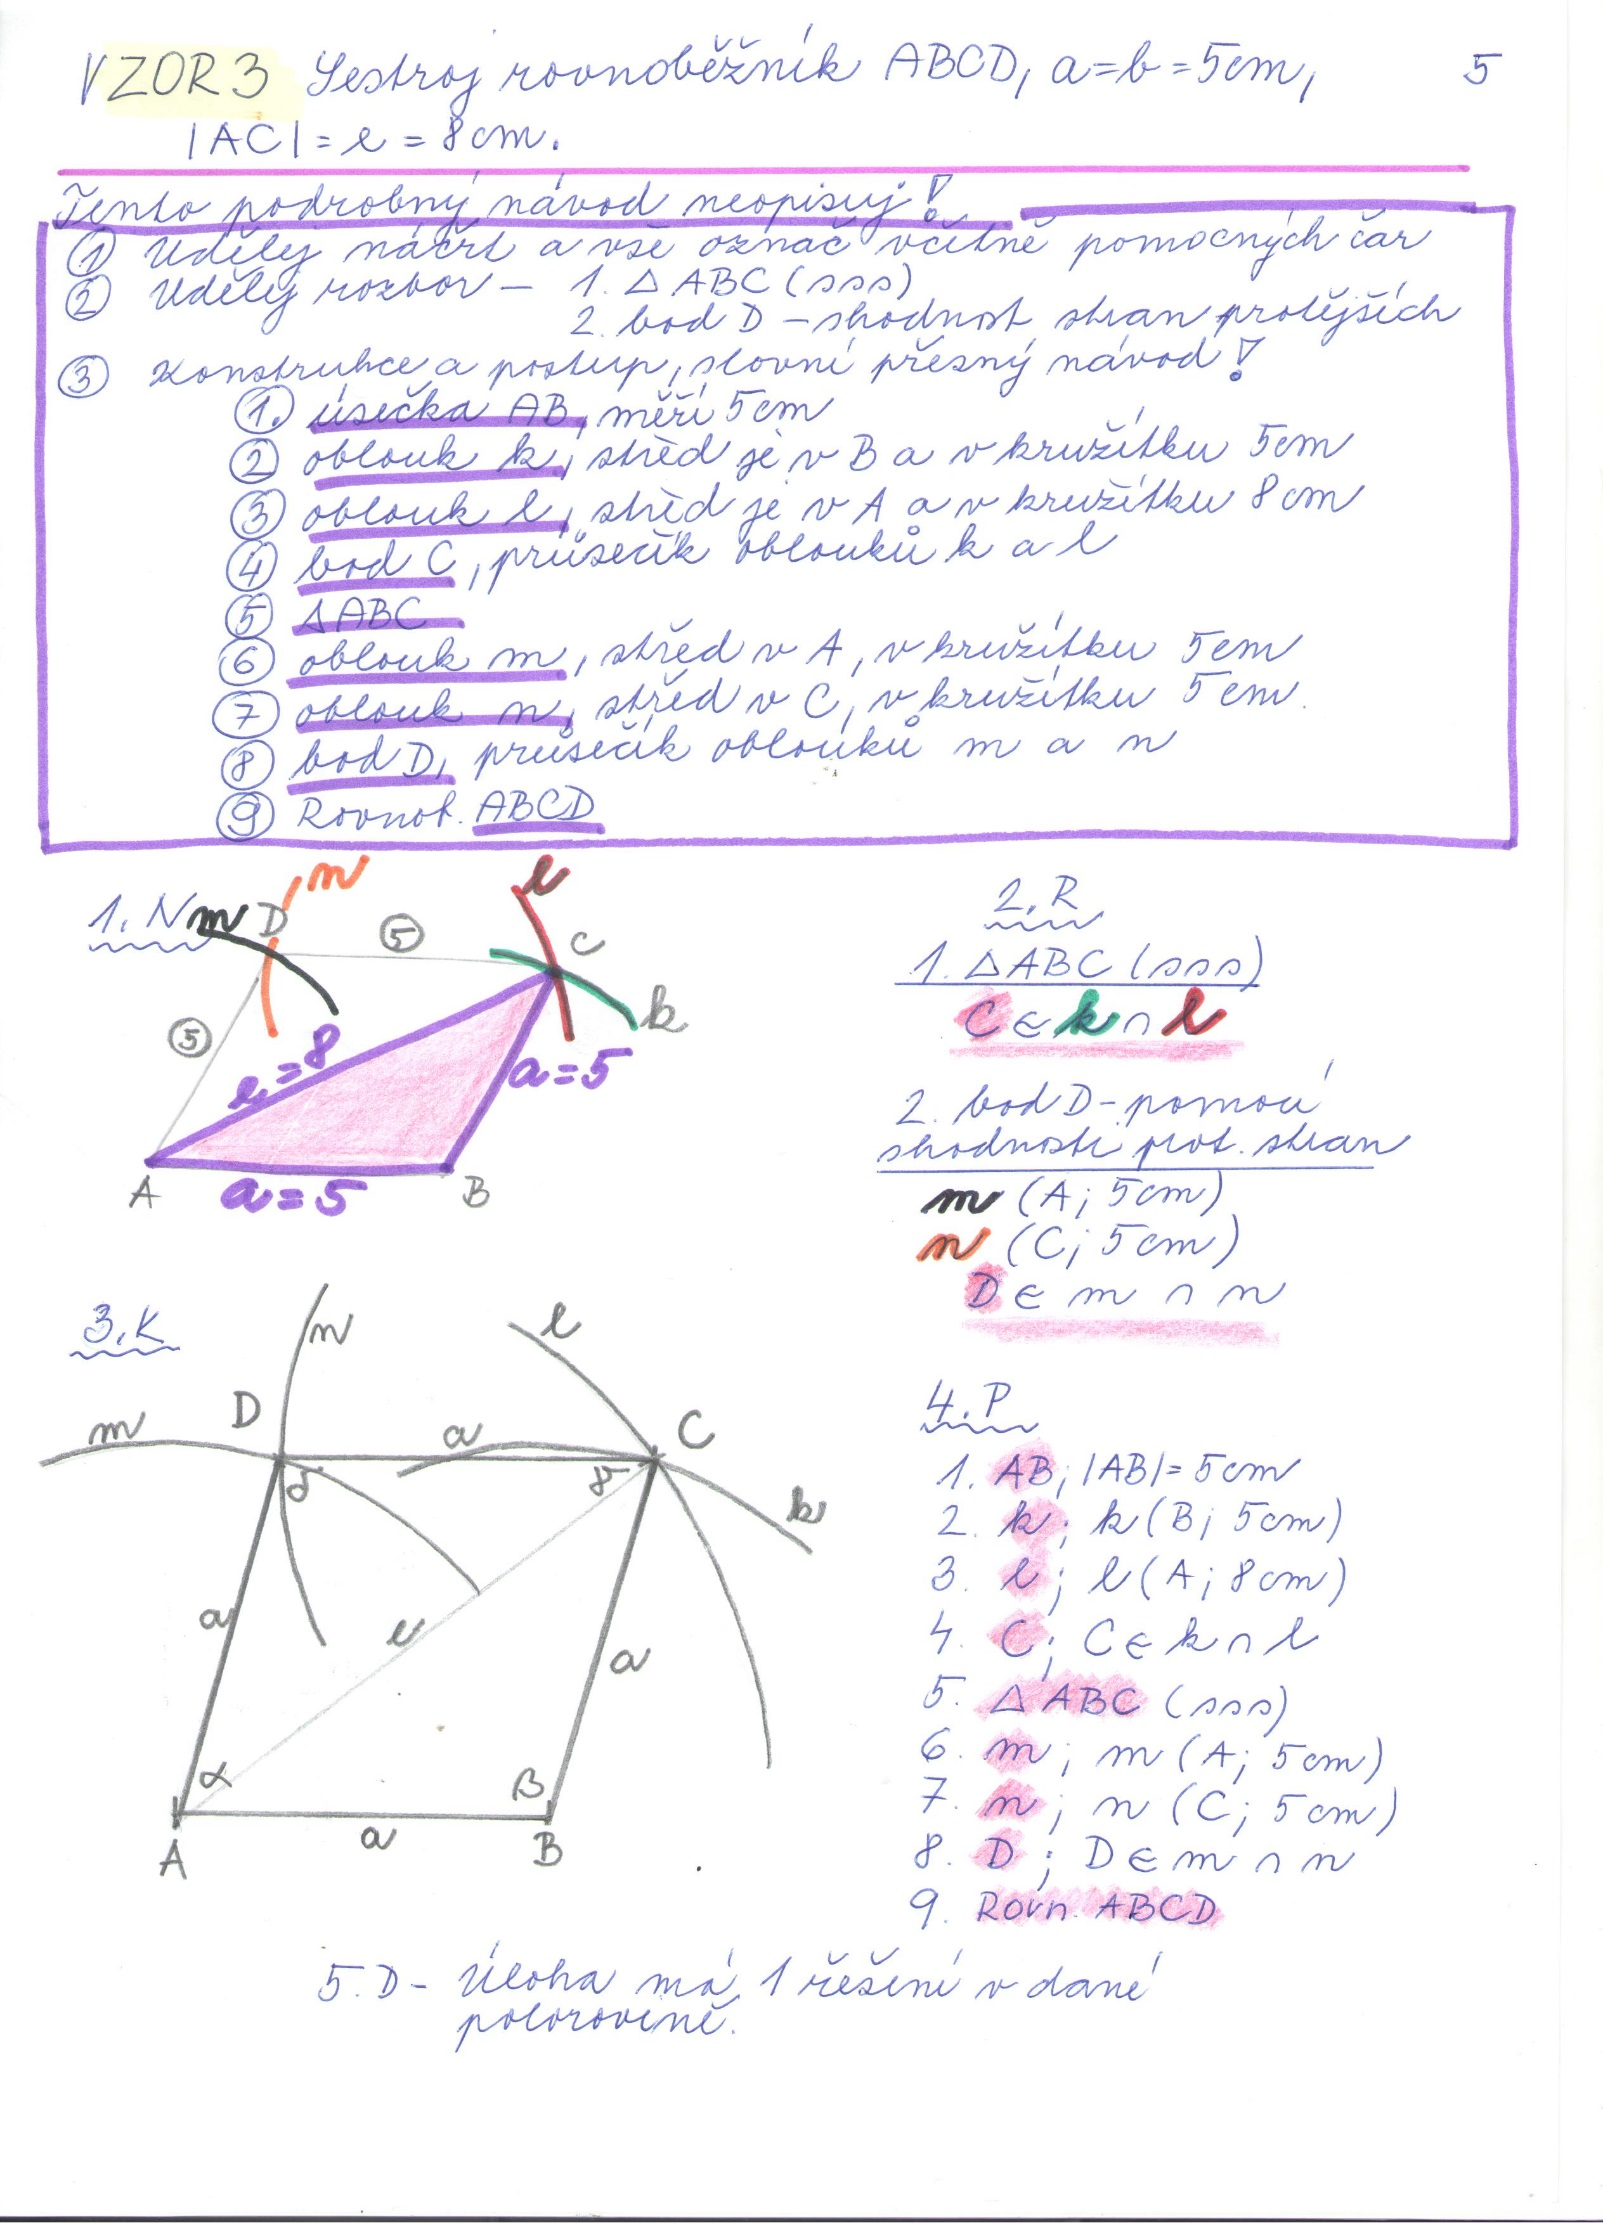 VZOR 3 Sestroj rovnoběžník ABCD, a=b=5cm, 5
|AC|=e=8cm.
Tento podrobný návod neopisuj!
① Udělej náčrt a vše označ včetně pomocných čar
② Udělej rozbor – 1. △ABC (sss)
2. bod D – shodnost stran protějších
③ Konstrukce a postup, slovní přesný návod!
①. úsečka AB, měří 5cm
② oblouk k, střed je v B a v kružítku 5cm
③ oblouk l, střed je v A a v kružítku 8cm
④ bod C, průsečík oblouků k a l
⑤ △ABC
⑥ oblouk m, střed v A, v kružítku 5cm
⑦ oblouk n, střed v C, v kružítku 5cm.
⑧ bod D, průsečík oblouků m a n
⑨ Rovnob. ABCD
1. N
m
D
n
⑤
l
C
k
⑤
e=8
a=5
A
a=5
B
2. R
1. △ABC (sss)
C∈k∩l
2. bod D – pomocí
shodnosti prot. stran
m (A; 5cm)
n (C; 5cm)
D∈m∩n
3. K
n
l
D
C
m
a
δ
γ
k
a
e
a
α
β
A
a
B
4. P
1. AB; |AB|=5cm
2. k; k(B; 5cm)
3. l; l(A; 8cm)
4. C; C∈k∩l
5. △ABC (sss)
6. m; m(A; 5cm)
7. n; n(C; 5cm)
8. D; D∈m∩n
9. Rovn. ABCD
5. D – Úloha má 1 řešení v dané
polorovině.